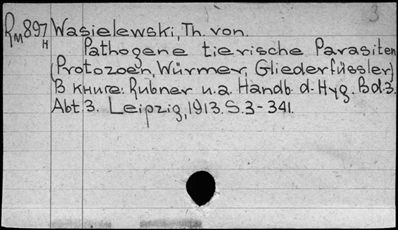 3
RM897H Wasielewski, Th. von.
Pathogene tierische Parasiten
(Protozoen, Würmer, Gliederfüssler)
В книге: Rubner u.a. Handb. d. Hyg. Bd.3.
Abt 3. Leipzig, 1913. S.3-341.